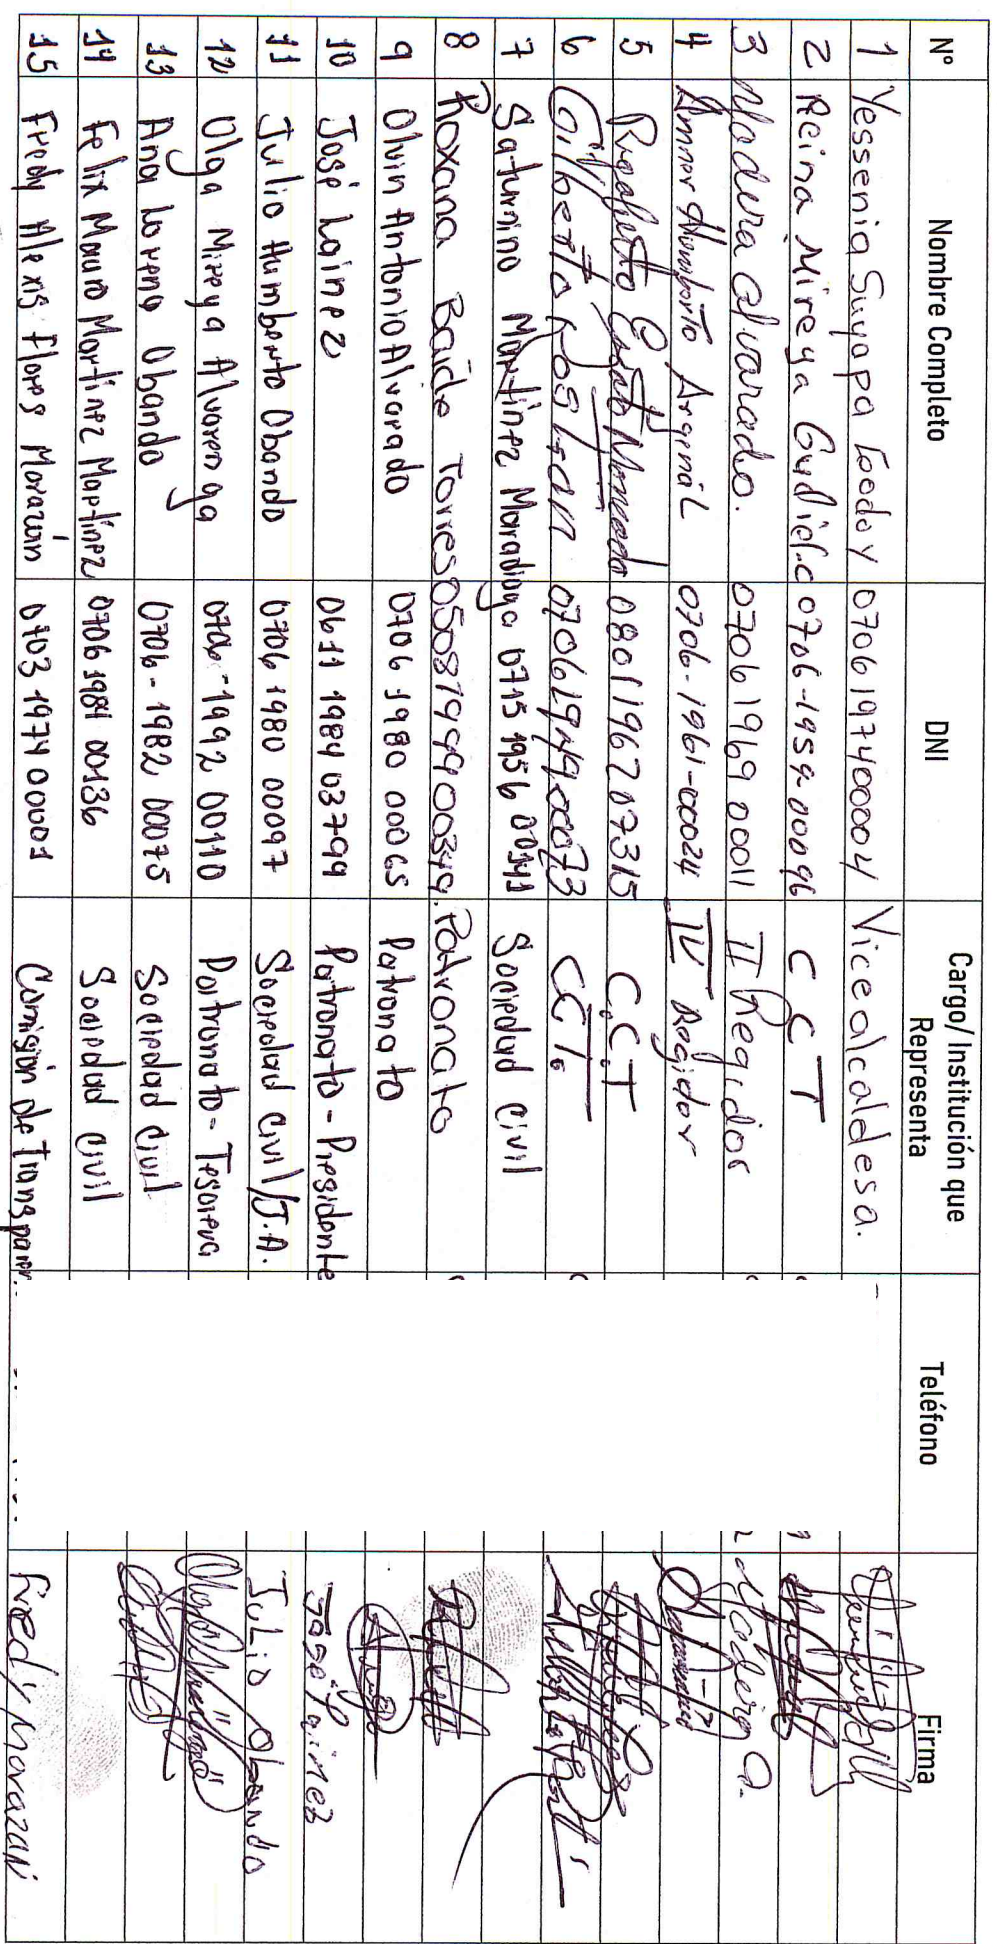 Nº Nombre Completo DNI Cargo/ Institución que Representa Teléfono Firma
1 Yessenia Suyapa Godoy 0706197400004 Vicealcaldesa.
2 Reina Mireya Gudiel.c 0706-1959-00096 C C T
3 Madera alvarado. 0706 1969 00011 II Regidor Madera a.
4 Amnor Humberto Argenal 0706-1961-00024 IV Regidor
5 Rigoberto Moncada 0801196707315 C.C.T
6 Gilberto 0706194900073 CCT.
7 Saturnino Martinez Maradiaga 0715 1956 00141 Sociedad Civil
8 Roxana Baide Torres 0508199900349. Patronato
9 Olvin Antonio Alvarado 0706 1980 00065 Patronato
10 José Lainez 0611 1984 03799 Patronato - Presidente José Lainez
11 Julio Humberto Obando 0706 1980 00097 Sociedad Civil/J.A. Julio Obando
12 Olga Mireya Alvarenga 0706-1992 00110 Patronato - Tesorera
13 Ana Lorena Obando 0706-1982 00075 Sociedad Civil
14 Felix Mauro Martinez Martinez 0706 1981 00136 Sociedad Civil
15 Fredy Alexis Flores Morazán 0703 1974 00001 Comisión de Transparen. Fredy Morazan